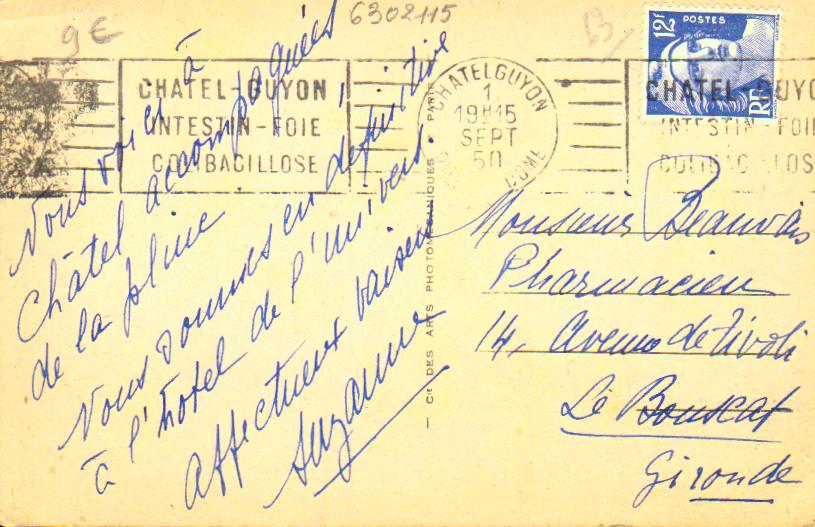 9 €
6302115
63
CHATEL-GUYON
INTESTIN-FOIE
COLIBACILLOSE
CHATELGUYON
1
19H15
SEPT
50
DOME
12F
POSTES
RF
CHATEL-GUYO
INTESTIN-FOI
COLIBACILLOS
Nous voici à
Châtel accompagnées
de la pluie
Nous sommes en définitive
à l'hôtel de l'Univers
Affectueux baisers
Suzanne
— CIE DES ARTS PHOTOMÉCANIQUES • PARIS
Monsieur Beauvais
Pharmacien
14, Avenue de Tivoli
Le Bouscat
Gironde